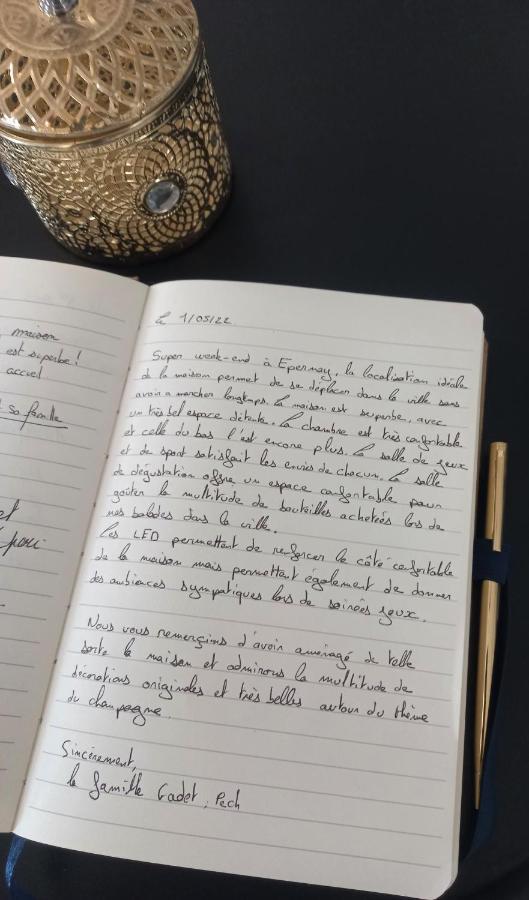 maison
est superbe !
accueil
sa famille
et
Le 1/05/22
Super week-end à Epernay, la localisation idéale
de la maison permet de se déplacer dans la ville sans
avoir a marcher longtemps. La maison est superbe, avec
un très bel espace détente. La chambre est très confortable
et celle du bas l'est encore plus. La salle de jeux
et de sport satisfait les envies de chacun. La salle
de dégustation offre un espace confortable pour
goûter la multitude de bouteilles achetées lors de
nos balades dans la ville.
Les LED permettent de renforcer le côté confortable
de la maison mais permettent également de donner
des ambiances sympatiques lors de soirées jeux.
Nous vous remercions d'avoir aménagé de telle
sorte la maison et admirons la multitude de
décorations originales et très belles autour du thème
du champagne.
Sincèrement,
la famille Cadot, Pech